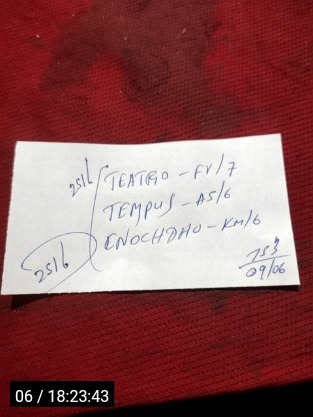 25/6 TEATRO - FV/7
TEMPUS - AS/6
ENOCHDHO - KM/6
25/6
09/06
06 / 18:23:43